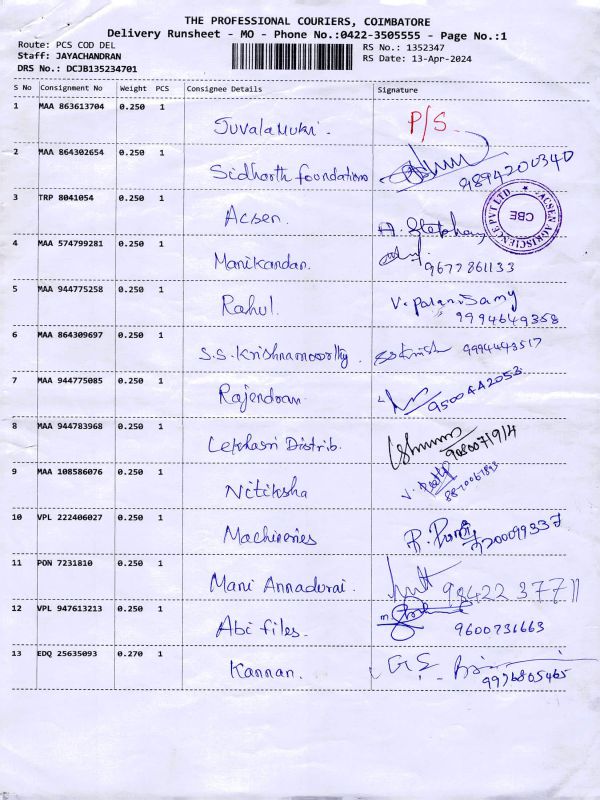 THE PROFESSIONAL COURIERS, COIMBATORE
Delivery Runsheet - MO - Phone No.:0422-3505555 - Page No.:1
Route: PCS COD DEL
RS No.: 1352347
Staff: JAYACHANDRAN
RS Date: 13-Apr-2024
DRS No.: DCJB135234701
S No Consignment No Weight PCS Consignee Details Signature
1 MAA 863613704 0.250 1
Juvalamuki. P/S.
2 MAA 864302654 0.250 1
Sidharth foundations 9894200340
3 TRP 8041054 0.250 1
Acsen. A. Stephan
ACSEN AGRISCIENCE PVT LTD. CBE
4 MAA 574799281 0.250 1
Manikandan. 9677861133
5 MAA 944775258 0.250 1
Rahul. V. Palanisamy
9994649358
6 MAA 864309697 0.250 1
S.S. Krishnamoorthy. 9994493517
7 MAA 944775085 0.250 1
Rajendran 9500442053
8 MAA 944783968 0.250 1
Lekhasri Distrib.
9 MAA 108586076 0.250 1
Nitiksha
10 VPL 222406027 0.250 1
Machineries
11 PON 7231810 0.250 1
Mani Annadurai. 98422 37711
12 VPL 947613213 0.250 1
Abi files. 9600731663
13 EDQ 25635093 0.270 1
Kannan. 9976805465